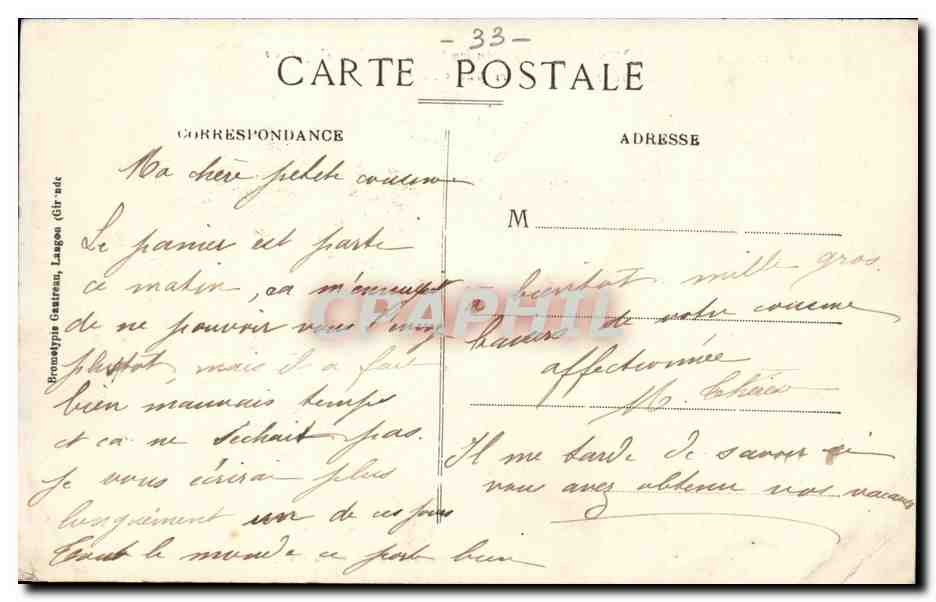 - 33 -
CARTE POSTALE
CORRESPONDANCE
ADRESSE
Bromotypie Gautreau, Langon (Gironde
M
Ma chère petite cousine
Le panier est parti
ce matin, ça m'ennuyait
de ne pouvoir vous l'envoyer
plustôt, mais il a fait
bien mauvais temps
et ça ne séchait pas.
Je vous écrirai plus
longuement un de ces jours
Tout le monde ce port bien
a bientot mille gros
baisers de votre cousine
affectionnée
M.
Il me tarde de savoir si
vous avez obtenu vos vacances
CPAPHIL